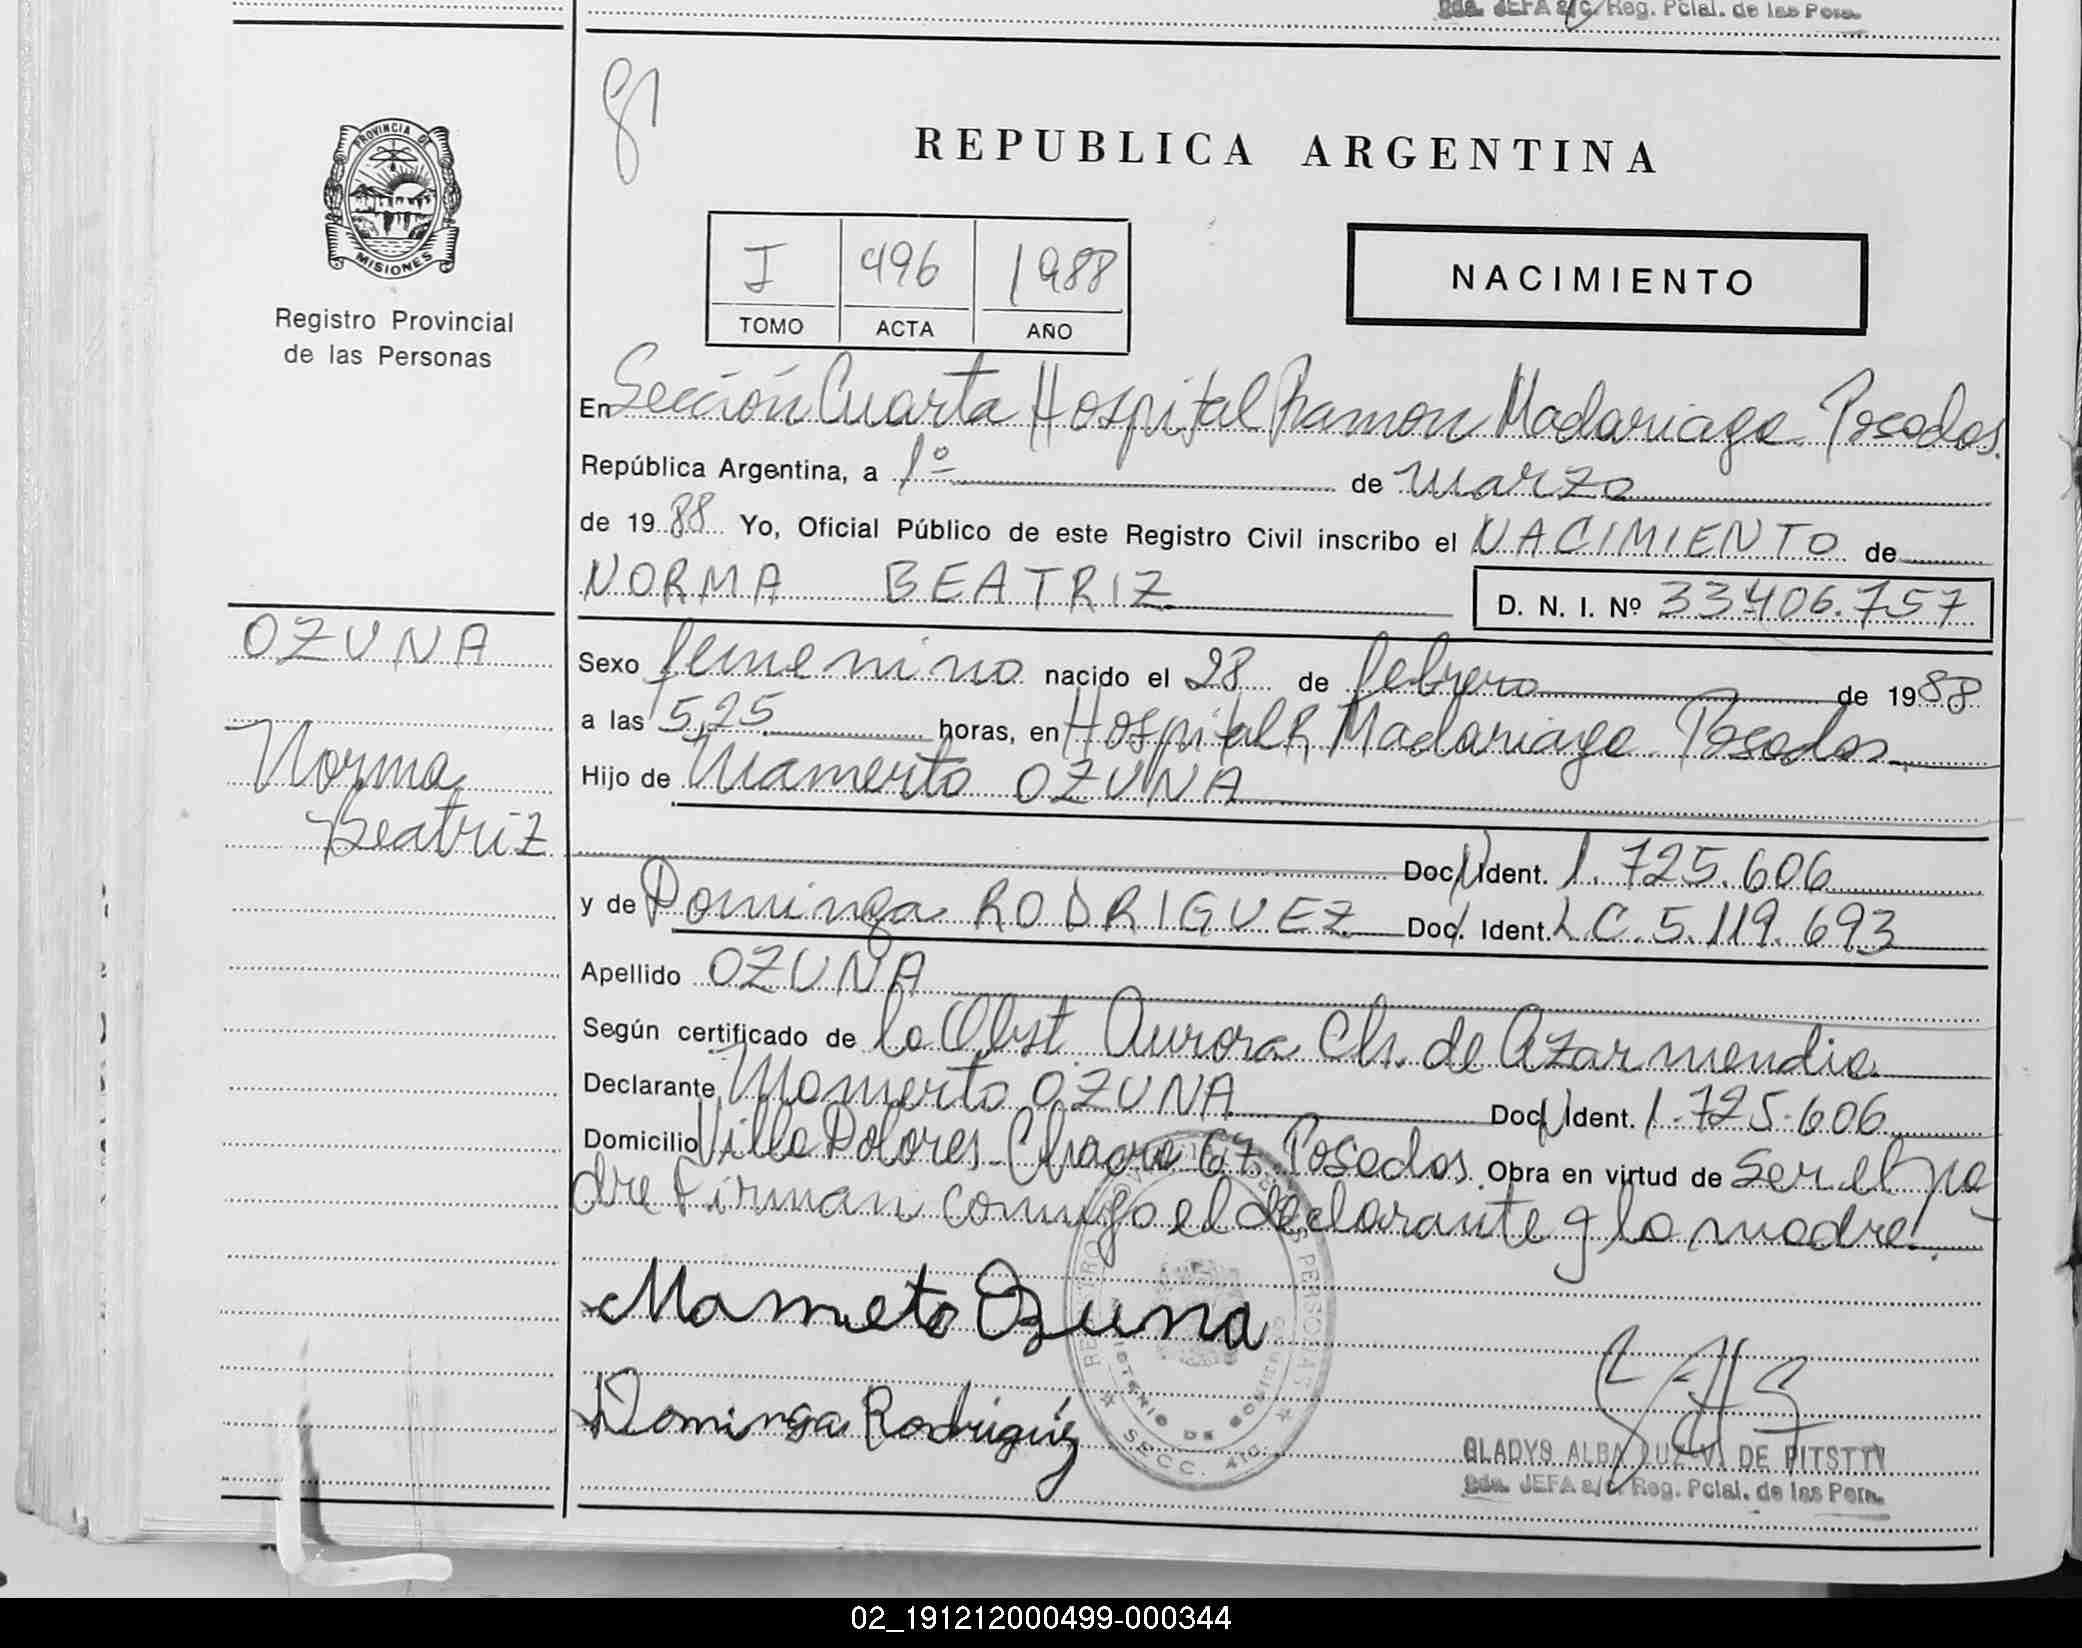 Gda. JEFA a/c. Reg. Pcial. de las Pers.
PROVINCIA DE
MISIONES
Registro Provincial
de las Personas
REPUBLICA ARGENTINA
I 496 1988
TOMO ACTA AÑO
NACIMIENTO
En Sección Cuarta Hospital Ramon Madariaga Posadas.
República Argentina, a 1º de marzo
de 1988 Yo, Oficial Público de este Registro Civil inscribo el NACIMIENTO de
NORMA BEATRIZ
D. N. I. Nº 33.406.757
OZUNA
Norma
Beatriz
Sexo femenino nacido el 28 de febrero de 1988
a las 5,25 horas, en Hospital R. Madariaga Posadas.
Hijo de Mamerto OZUNA
Doc. Ident. 1.725.606
y de Dominga RODRIGUEZ Doc. Ident. L.C. 5.119.693
Apellido OZUNA
Según certificado de la Obst. Aurora Ch. de Azarmendia
Declarante Mamerto OZUNA Doc. Ident. 1.725.606
Domicilio Villa Dolores Chacra 67 Posadas. Obra en virtud de ser el pa
dre Firman conmigo el declarante y la madre.
Mameto Ozuna
Dominga Rodriguez
SECC. 4ta
GLADYS ALBA LUZ V. DE PITSTTY
Gda. JEFA a/c. Reg. Pcial. de las Pers.
02_191212000499-000344